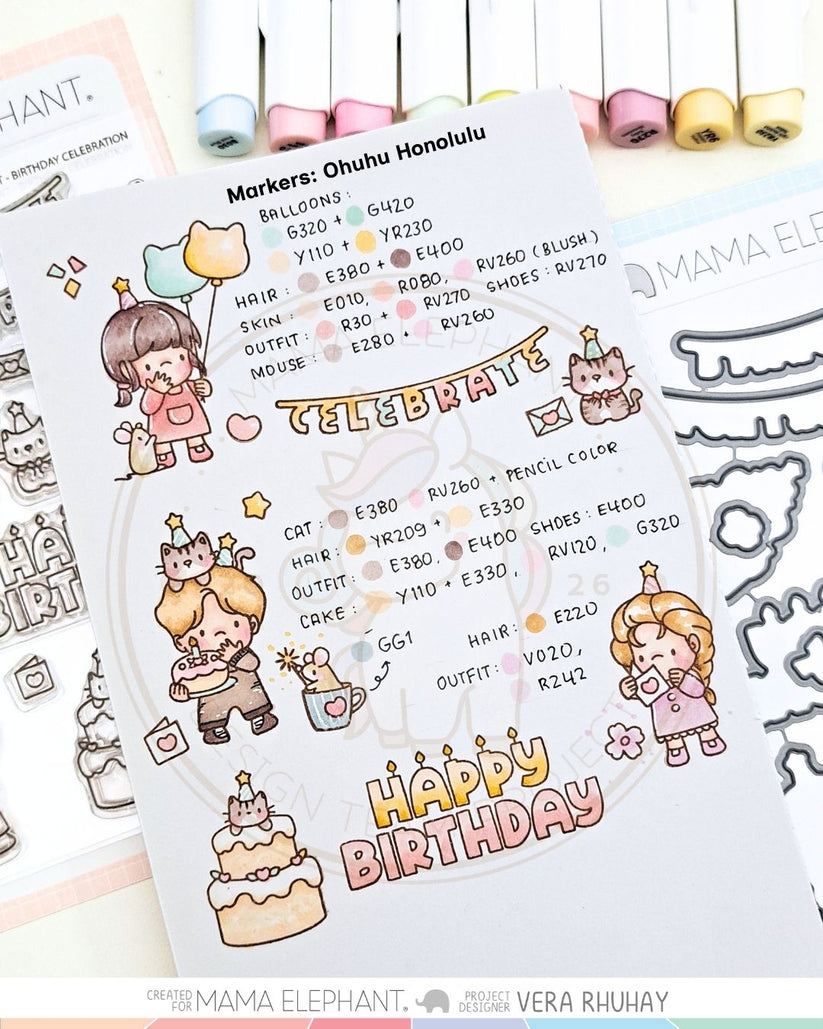 EPHANT®
T - BIRTHDAY CELEBRATION
Markers: Ohuhu Honolulu
BALLOONS:
G320 + G420
Y110 + YR230
HAIR: E380 + E400
SKIN: E010, R080, RV260 (BLUSH)
OUTFIT: R30 + RV270 SHOES: RV270
MOUSE: E280 + RV260
CELEBRATE
CAT: E380 RV260 + PENCIL COLOR
HAIR: YR209 + E330
OUTFIT: E380, E400 SHOES: E400
CAKE: Y110 + E330, RV120, G320
GG1
HAIR: E220
OUTFIT: V020,
R242
HAPPY
BIRTHDAY
MAMA ELE
MAMA ELEPHANT
DESIGN TEAM PROJECT
26
CREATED FOR MAMA ELEPHANT® PROJECT DESIGNER VERA RHUHAY